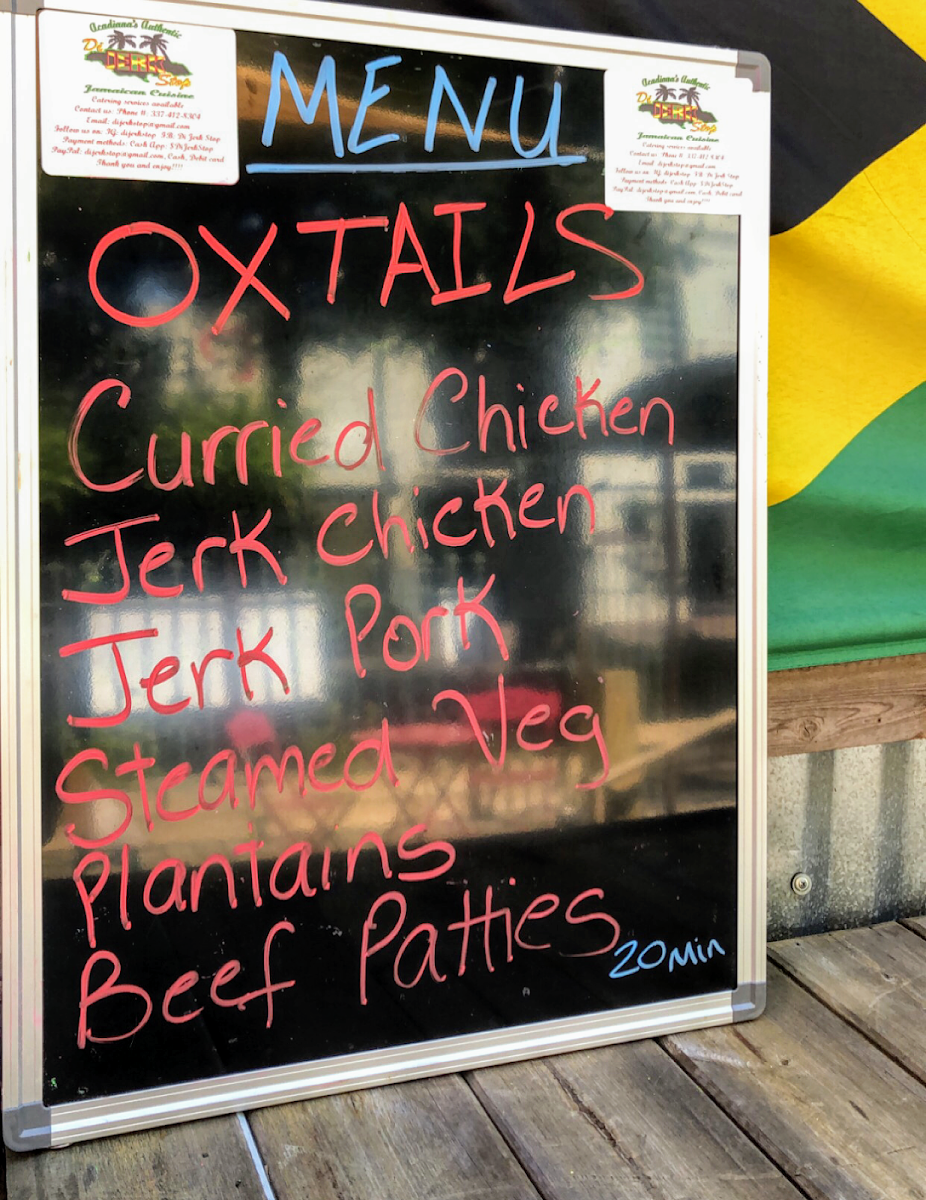 Acadiana's Authentic
Di JERK Stop
Jamaican Cuisine
Catering services available
Contact us: Phone #: 337-412-8304
Email: dijerkstop@gmail.com
Follow us on: IG: dijerkstop FB: Di Jerk Stop
Payment methods: Cash App: $DiJerkStop
PayPal: dijerkstop@gmail.com, Cash, Debit card
Thank you and enjoy!!!!
MENU
Acadiana's Authentic
Di JERK Stop
Jamaican Cuisine
Catering services available
Contact us: Phone #: 337-412-8304
Email: dijerkstop@gmail.com
Follow us on: IG: dijerkstop FB: Di Jerk Stop
Payment methods: Cash App: $DiJerkStop
PayPal: dijerkstop@gmail.com, Cash, Debit card
Thank you and enjoy!!!!
OXTAILS
Curried Chicken
Jerk Chicken
Jerk Pork
Steamed Veg
Plantains
Beef Patties 20 Min